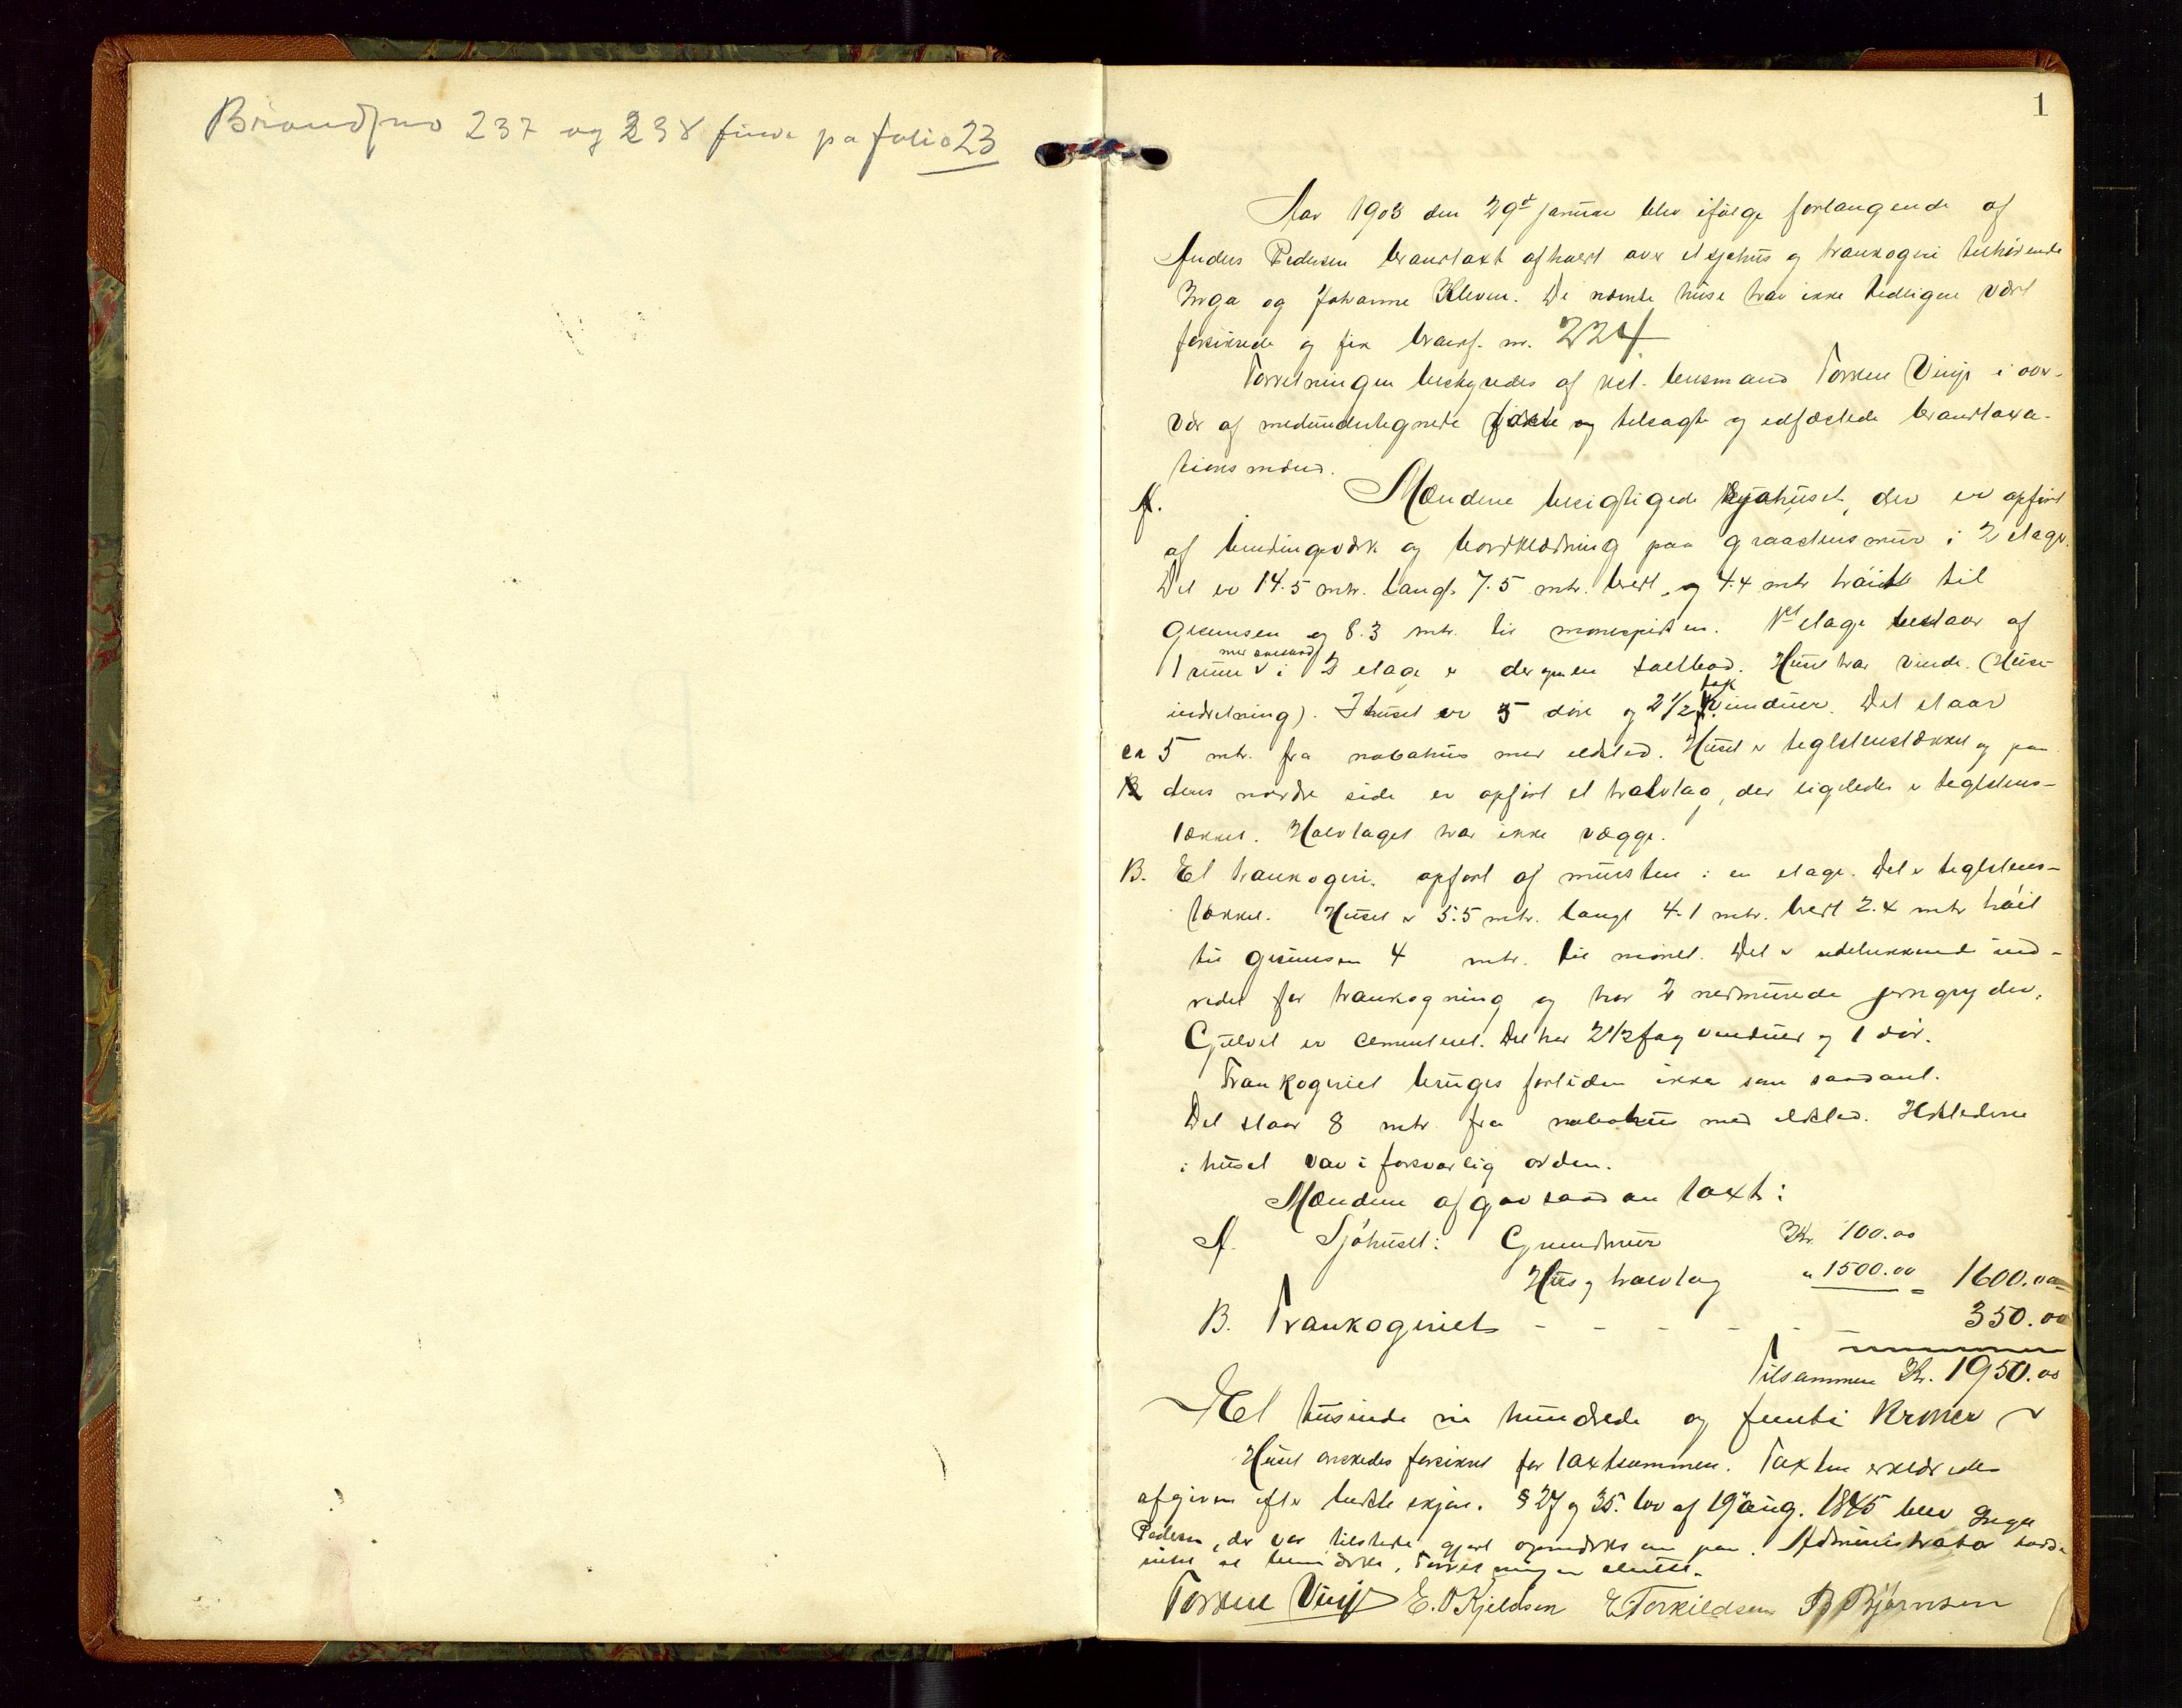 Brandfno 237 og 238 finde pa folio 23
1
Aar 1903 den 29de januar blev ifølge forlangende af
Anders Pedersen brandtaxt afholdt over et sjøhus og trankogeri tilhørende
Inga og Johanne Kleven. De nævnte huse har ikke tidligere vært
forsikrede og fik brandf. nr. 224
Forretningen bestyredes af vct. lensmand Torkel Vinje i over-
vær af medundertegnede og tilsagte og edfæstede brandtaxa-
tionsmænd.
A. Mændene besigtigede sjøhuset, der er opført
af bindingsværk og bordklædning paa graastensmur i 2 etager.
Det er 14.5 mtr. langt 7.5 mtr. bredt og 4.4 mtr høidt til
gesimsen og 8.3 mtr. til mønespidsen. 1ste etage bestaar af
1 rum i 2 etage er dergen en saltbod. Huset har vinde. (Heise-
indretning). I huset er 5 døre og 2 1/2 fag vinduer. Det staar
ca 5 mtr. fra nabohus med ildsted. Huset er teglstenstækket og paa
dens nordre side er opført et halvtag, der ligeledes er teglstens-
tækket. Halvtaget har ikke vægge.
B. Et trankogeri, opført af mursten i en etage. Det er teglstens-
tækket. Huset er 5.5 mtr. langt 4.1 mtr. bredt 2.4 mtr høit
til gesimsen 4 mtr. til mønet. Det er udelukkende ind-
redet for trankogning og har 2 nedmurede jerngryder,
Gulvet er cementeret. Det har 2 1/2 fag vinduer og 1 dør.
Trankogeriet bruges fortiden ikke som saadant.
Det staar 8 mtr. fra nabohus med ildsted. Ildstederne
i huset var i forsvarlig orden.
Mændene afgav saadan taxt:
A. Sjøhuset: Grundmur Kr. 100.00
Hus og halvtag " 1500.00 = 1600.00
B. Trankogeriet - - - - - - 350.00
Tilsammen Kr. 1950.00
Et tusinde ni hundrede og femti kroner
Huset ønskedes forsikret for taxtsummen. Taxten erklæredes
afgiven efter bedste skjøn. § 27 og 35. lov af 19de aug. 1845 blev Inga
Pedersen, der var tilstede gjort opmærksom paa. Administrator havde
intet at bemærke. Forretningen sluttet.
Torkel Vinje E. O Kjeldsen E. Torkildsen B Bjørnsen